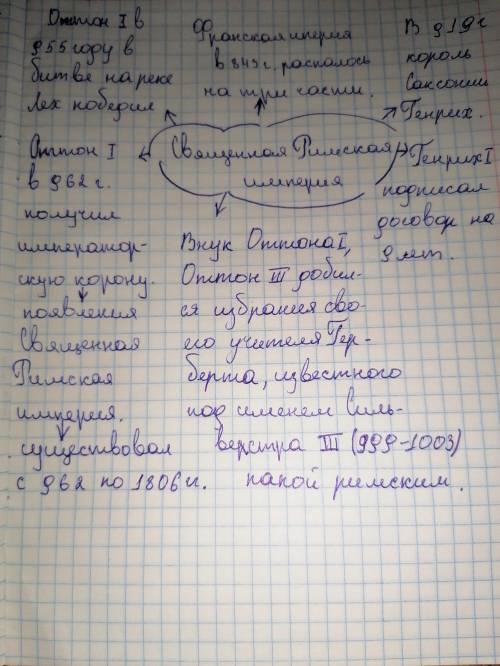 Оттон I в
955 году в
битве на реке
Лех победил
Франская иперия
в 843 г. распалось
на три части.
В 919 г
король
Саксонии
Генрих.
Священная Римская
империя
Оттон I
в 962 г.
получил
император-
скую корону.
появления
Священная
Римская
империя.
существовал
с 962 по 1806 г.
Генрих I
подписал
договор на
9 лет.
Внук Оттона I,
Оттон III добил-
ся избрания сво-
его учителя Гер-
берта, известного
под именем Силь-
верстра III (999-1003)
папой римским.